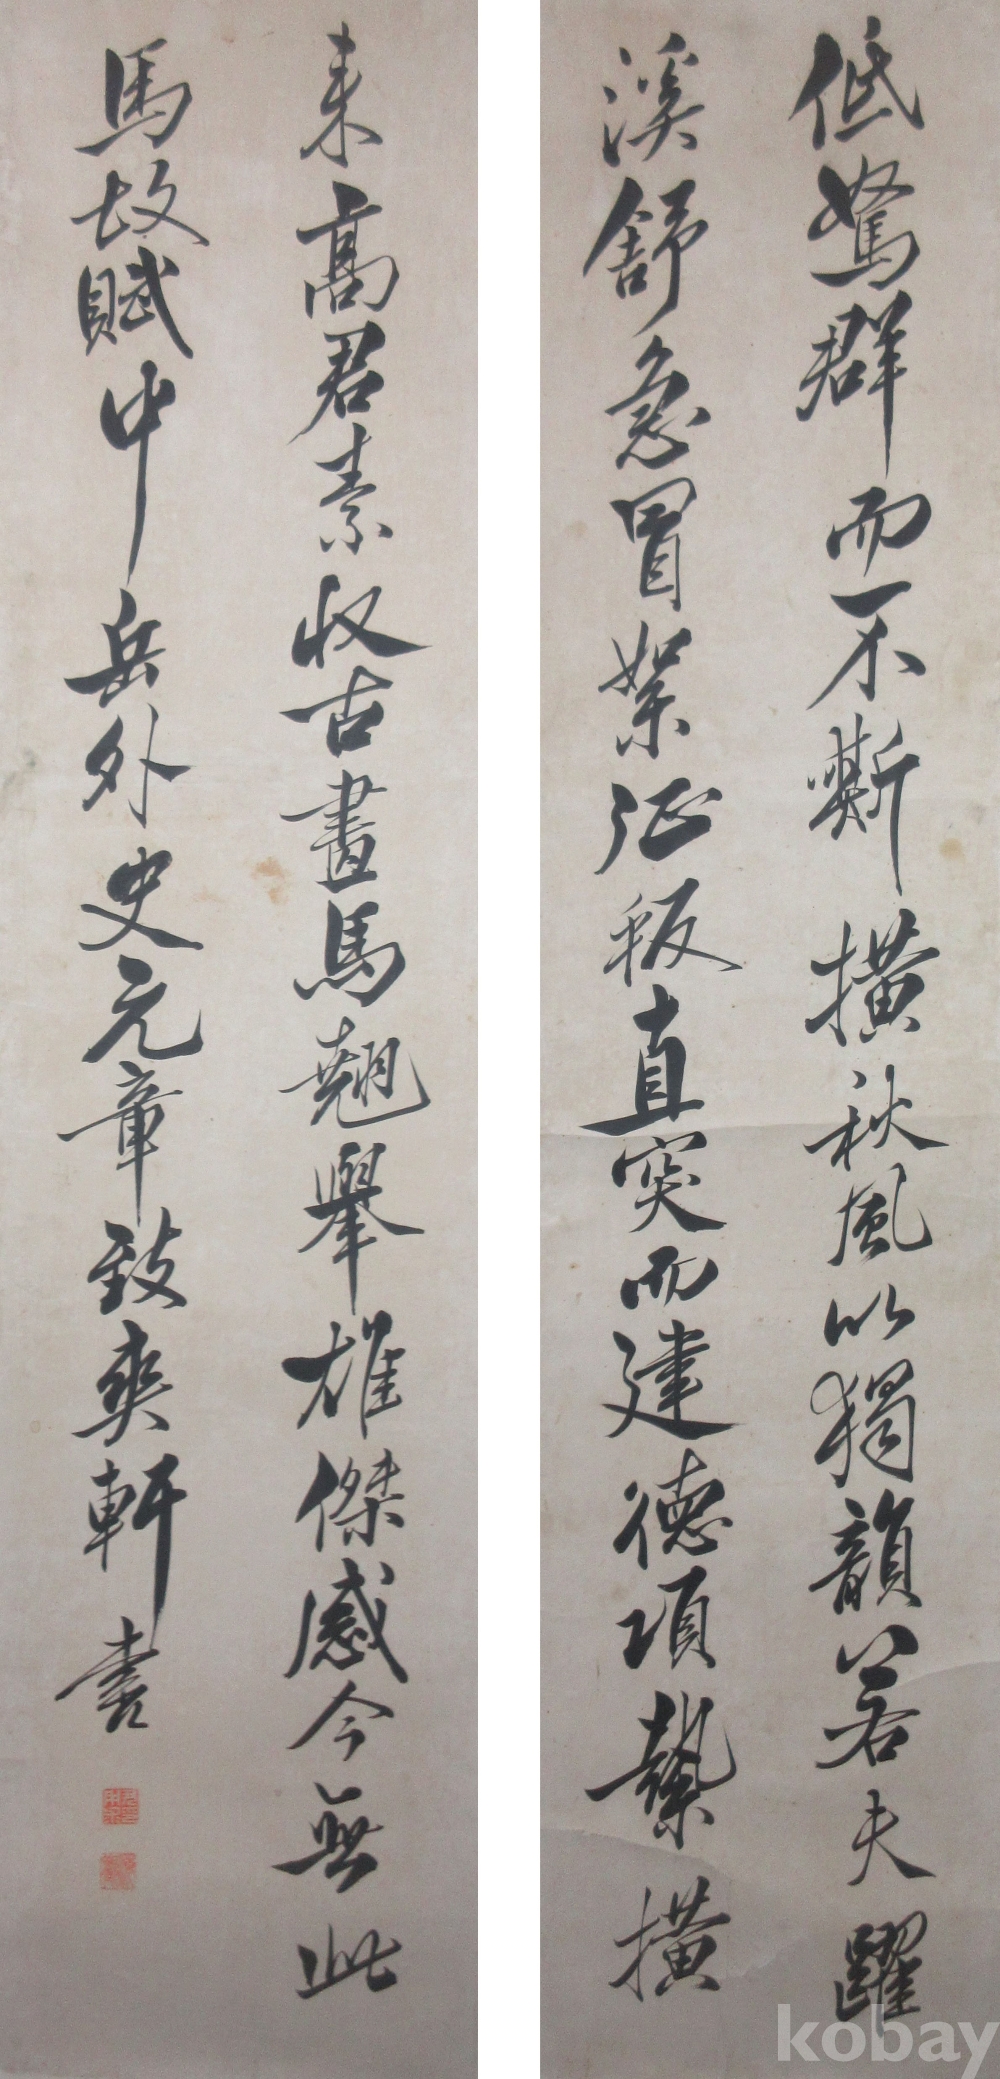 低駑群而不嘶橫秋風以獨韻若夫躍
溪舒急冒絮征叛直突而建德項縶橫
来高君素收古畫馬翹舉雄傑感今無此
馬故賦中岳外史元章致爽軒書
kobay